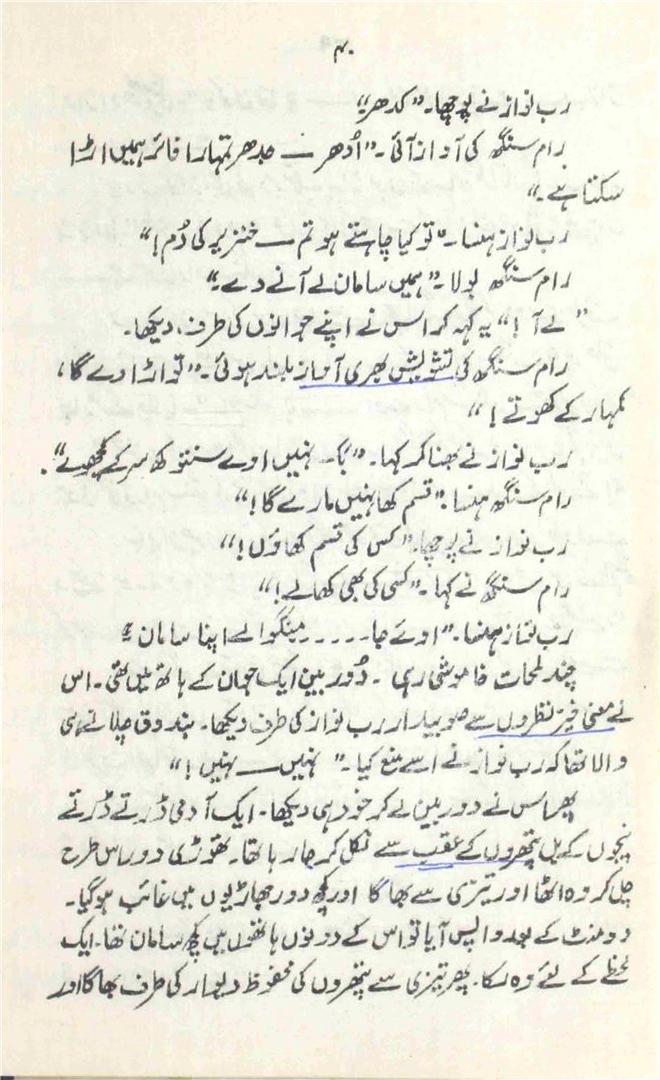 ۴۰
رب نواز نے پوچھا۔ ”کدھر“
رام سنگھ کی آواز آئی۔ ”اُدھر — جدھر تمہارا فائر ہمیں اڑا
سکتا ہے۔“
رب نواز ہنسا۔ ”تو کیا چاہتے ہو تم — خنزیر کی دُم!“
رام سنگھ بولا۔ ”ہمیں سامان لے آنے دے۔“
”لے آ!“ یہ کہہ کر اس نے اپنے جوانوں کی طرف دیکھا۔
رام سنگھ کی تشویش بھری آواز بلند ہوئی۔ ”تو اڑا دے گا،
کمہار کے کھوتے!“
رب نواز نے بھنا کر کہا۔ ”بک نہیں اوے سنتوکھ سر کے کچھوے“۔
رام سنگھ ہنسا۔ ”قسم کھا نہیں مارے گا!“
رب نواز نے پوچھا۔ ”کس کی قسم کھاؤں!“
رام سنگھ نے کہا۔ ”کسی کی بھی کھالے!“
رب نواز ہنسا۔ ”اوئے جا۔۔۔۔۔ منگوالے اپنا سامان“
چند لمحات خاموشی رہی۔ دُوربین ایک جوان کے ہاتھ میں تھی۔ اس
نے معنی خیز نظروں سے صوبیدار رب نواز کی طرف دیکھا۔ بندوق چلانے ہی
والا تھا کہ رب نواز نے اسے منع کیا۔ ”نہیں — نہیں!“
پھر اس نے دوربین لے کر خود ہی دیکھا۔ ایک آدمی ڈرتے ڈرتے
پنجوں کے بل پتھروں کے عقب سے نکل کر جا رہا تھا۔ تھوڑی دور اس طرح
چل کر وہ اٹھا اور تیزی سے بھاگا اور کچھ دور جھاڑیوں میں غائب ہوگیا۔
دو منٹ کے بعد واپس آیا تو اس کے دونوں ہاتھوں میں کچھ سامان تھا۔ ایک
لحظے کے لئے وہ رکا۔ پھر تیزی سے پتھروں کی محفوظ دیوار کی طرف بھاگا اور